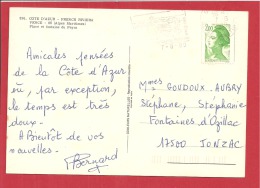 COTE D'AZUR - FRENCH RIVIERA
VENCE - 06 (Alpes Maritimes)
Place et
Amicales pensées
de la Côte d'Azur
où, par exception,
le temps est très
doux.
A Bientôt de vos
nouvelles.
Bernard
Mmes GOUDOUX-AUBRY
Stéphane, Stéphanie
Fontaines d'Ozillac
17500 JONZAC